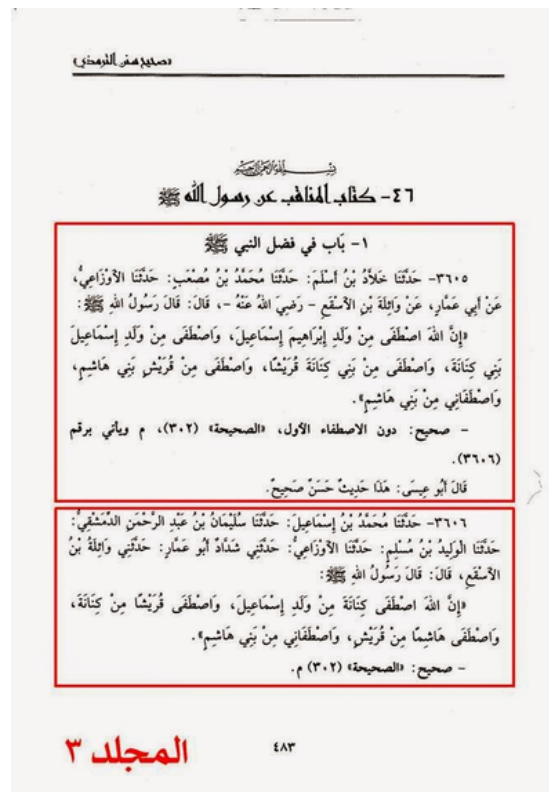 «صحيح سنن الترمذي»
بِسْمِ اللَّهِ الرَّحْمَنِ الرَّحِيمِ
٤٦- كتاب المناقب عن رسول الله ﷺ
١- بَاب في فضل النبي ﷺ
٣٦٠٥- حَدَّثَنَا خَلَّادُ بْنُ أَسْلَمَ: حَدَّثَنَا مُحَمَّدُ بْنُ مُصْعَبٍ: حَدَّثَنَا الأَوْزَاعِيُّ،
عَنْ أَبِي عَمَّارٍ، عَنْ وَاثِلَةَ بْنِ الأَسْقَعِ - رَضِيَ اللَّهُ عَنْهُ -، قَالَ: قَالَ رَسُولُ اللهِ ﷺ:
«إِنَّ اللهَ اصْطَفَى مِنْ وَلَدِ إِبْرَاهِيمَ إِسْمَاعِيلَ، وَاصْطَفَى مِنْ وَلَدِ إِسْمَاعِيلَ
بَنِي كِنَانَةَ، وَاصْطَفَى مِنْ بَنِي كِنَانَةَ قُرَيْشًا، وَاصْطَفَى مِنْ قُرَيْشٍ بَنِي هَاشِمٍ،
وَاصْطَفَانِي مِنْ بَنِي هَاشِمٍ».
- صحيح: دون الاصطفاء الأول، «الصحيحة» (٣٠٢)، م ويأتي برقم
(٣٦٠٦).
قَالَ أَبُو عِيسَى: هَذَا حَدِيثٌ حَسَنٌ صَحِيحٌ.
٣٦٠٦- حَدَّثَنَا مُحَمَّدُ بْنُ إِسْمَاعِيلَ: حَدَّثَنَا سُلَيْمَانُ بْنُ عَبْدِ الرَّحْمَنِ الدِّمَشْقِيُّ:
حَدَّثَنَا الْوَلِيدُ بْنُ مُسْلِمٍ: حَدَّثَنَا الأَوْزَاعِيُّ: حَدَّثَنِي شَدَّادٌ أَبُو عَمَّارٍ: حَدَّثَنِي وَاثِلَةُ بْنُ
الأَسْقَعِ، قَالَ: قَالَ رَسُولُ اللهِ ﷺ:
«إِنَّ اللهَ اصْطَفَى كِنَانَةَ مِنْ وَلَدِ إِسْمَاعِيلَ، وَاصْطَفَى قُرَيْشًا مِنْ كِنَانَةَ،
وَاصْطَفَى هَاشِمًا مِنْ قُرَيْشٍ، وَاصْطَفَانِي مِنْ بَنِي هَاشِمٍ».
- صحيح: «الصحيحة» (٣٠٢) م.
٤٨٣
المجلد ٣